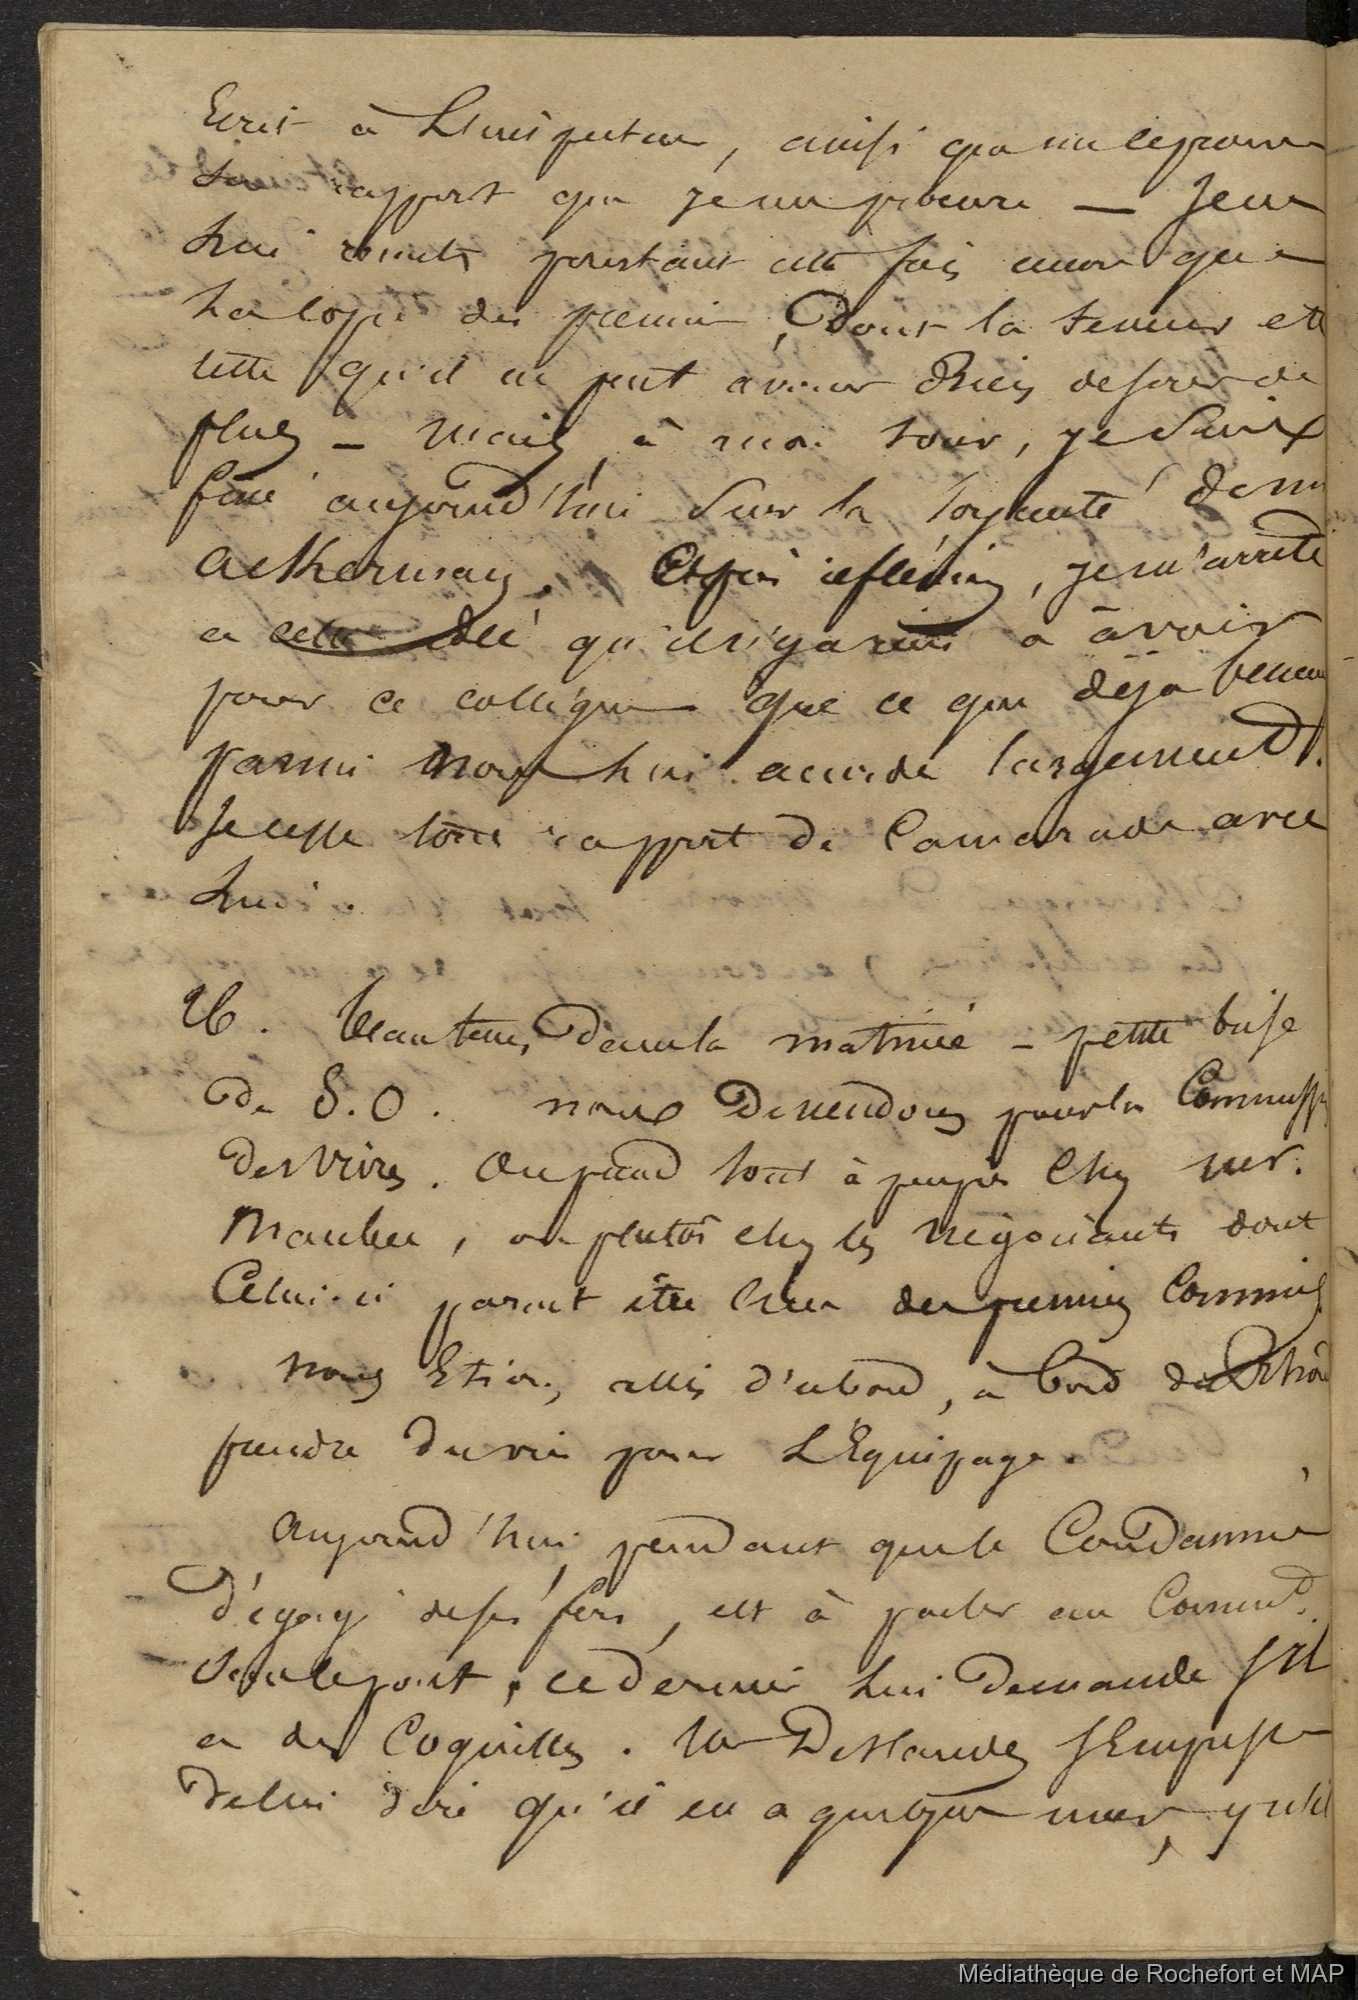 Ecrit à L'inspecteur, ainsi que un
Sur rapport que je me procure — Je ne
Lui remets pourtant cette fois encore que
La copie des premier, Dont la teneur est
telle qu'il ne peut avouer Rien desirer de
plus — Mais, à mon tour, je Suis
fixé aujourd'hui Sur la loyauté de mr
Ackerman. Et après reflexion, je m'arrête
a cette Idée qu'il n'y a rien à avoir
pour ce collègue que ce que déja beaucou
parmi nous lui accorde largement.
Je cesse tout rapport de Camarade avec
Lui.
26. Beau tems, Dans la matinée — petite brise
De S.O. nous Descendons pour la Commissi
Des Vivres. On prend tout à peu près Chez mr.
, ou plutôt chez les Négociants dont
Celui-ci parait être l'un des premiers Commis.
Nous Etions, allés d'abord, à bord
prendre Du vin pour L'Equipage.
Aujourd'hui, pendant que le Condamné
Dégagé de ses fers, est à parler au Commd.
Sur le pont, ce dernier lui Demande s'il
a des Coquilles. Mr Deslandes s'Empresse
De lui dire qu'il en a quelques unes,
Médiathèque de Rochefort et MAP